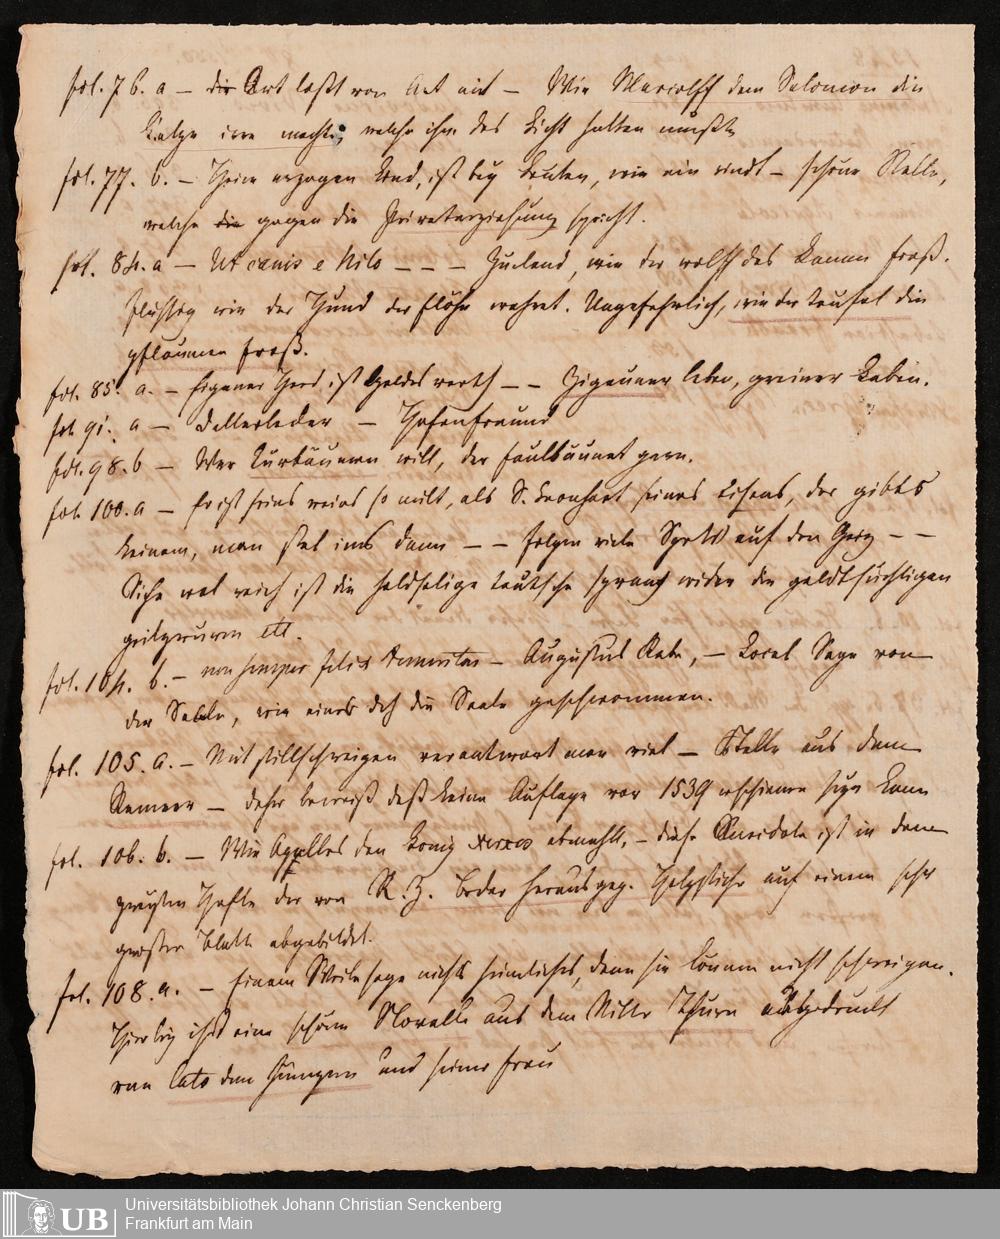 fol. 76. a — die Art laßt von Art nit — Wie Marcolff dem Salomon die
Katze irre machte, welche ihm das Licht halten mußte
fol. 77. b. — Heim erzogen Kind, ist bey Leuten, wie ein rindt — schöne Stelle,
welche die gegen die Privaterziehung spricht.
fol. 84. a — Ut canis e Nilo — — — Zuelend, wie der wolff das Lamm fraß.
Fleissig wie der Hund der flöhe wehret. Ungefehrlich, wie der teufel die
pflaumen fraß.
fol. 85. a. — Eigener Herd, ist Goldes werth — — Zigeuner leben, greiner Leben.
fol. 91. a — dellerlecker — Hafenfreund
fol. 98. b — Wer Kurbäumen will, der faulbäumet gern.
fol. 100. a — Er ist seins weins so milt, als S. Leonhart seines Eisens, der gibts
keinem, man stel ims dann — — folgen viele auf den Geiz — —
Sihe wol reich ist die holdselige teutsche sprach wider die geldtsüchtigen
geitzwurm etc.
fol. 104. b. — non semper felix temeritas — Augustus Rabe, — Local Sage von
der Saale, wie einer doch die Saale geschwommen.
fol. 105. a. — Mit stillschweigen verantwort man viel — Stelle aus dem
— daher beweiß daß keine Auflage vor 1539 erschienen seyn kann
fol. 106. b. — Wie Apelles den König Xerxes abmahlt, — diese Anecdote ist in dem
zweyten Hefte der von R. Z. Becker herausgeg. Holzstiche auf einem sehr
großen Blatt abgebildet.
fol. 108. a. — Einem Weib sage nichts heimliches, denn sie können nicht schweigen.
Hierbey ist eine schöne Novelle aus dem Ritter Thurn abgedruckt
von Cato dem Jüngern und seiner Frau
Universitätsbibliothek Johann Christian Senckenberg
Frankfurt am Main
UB